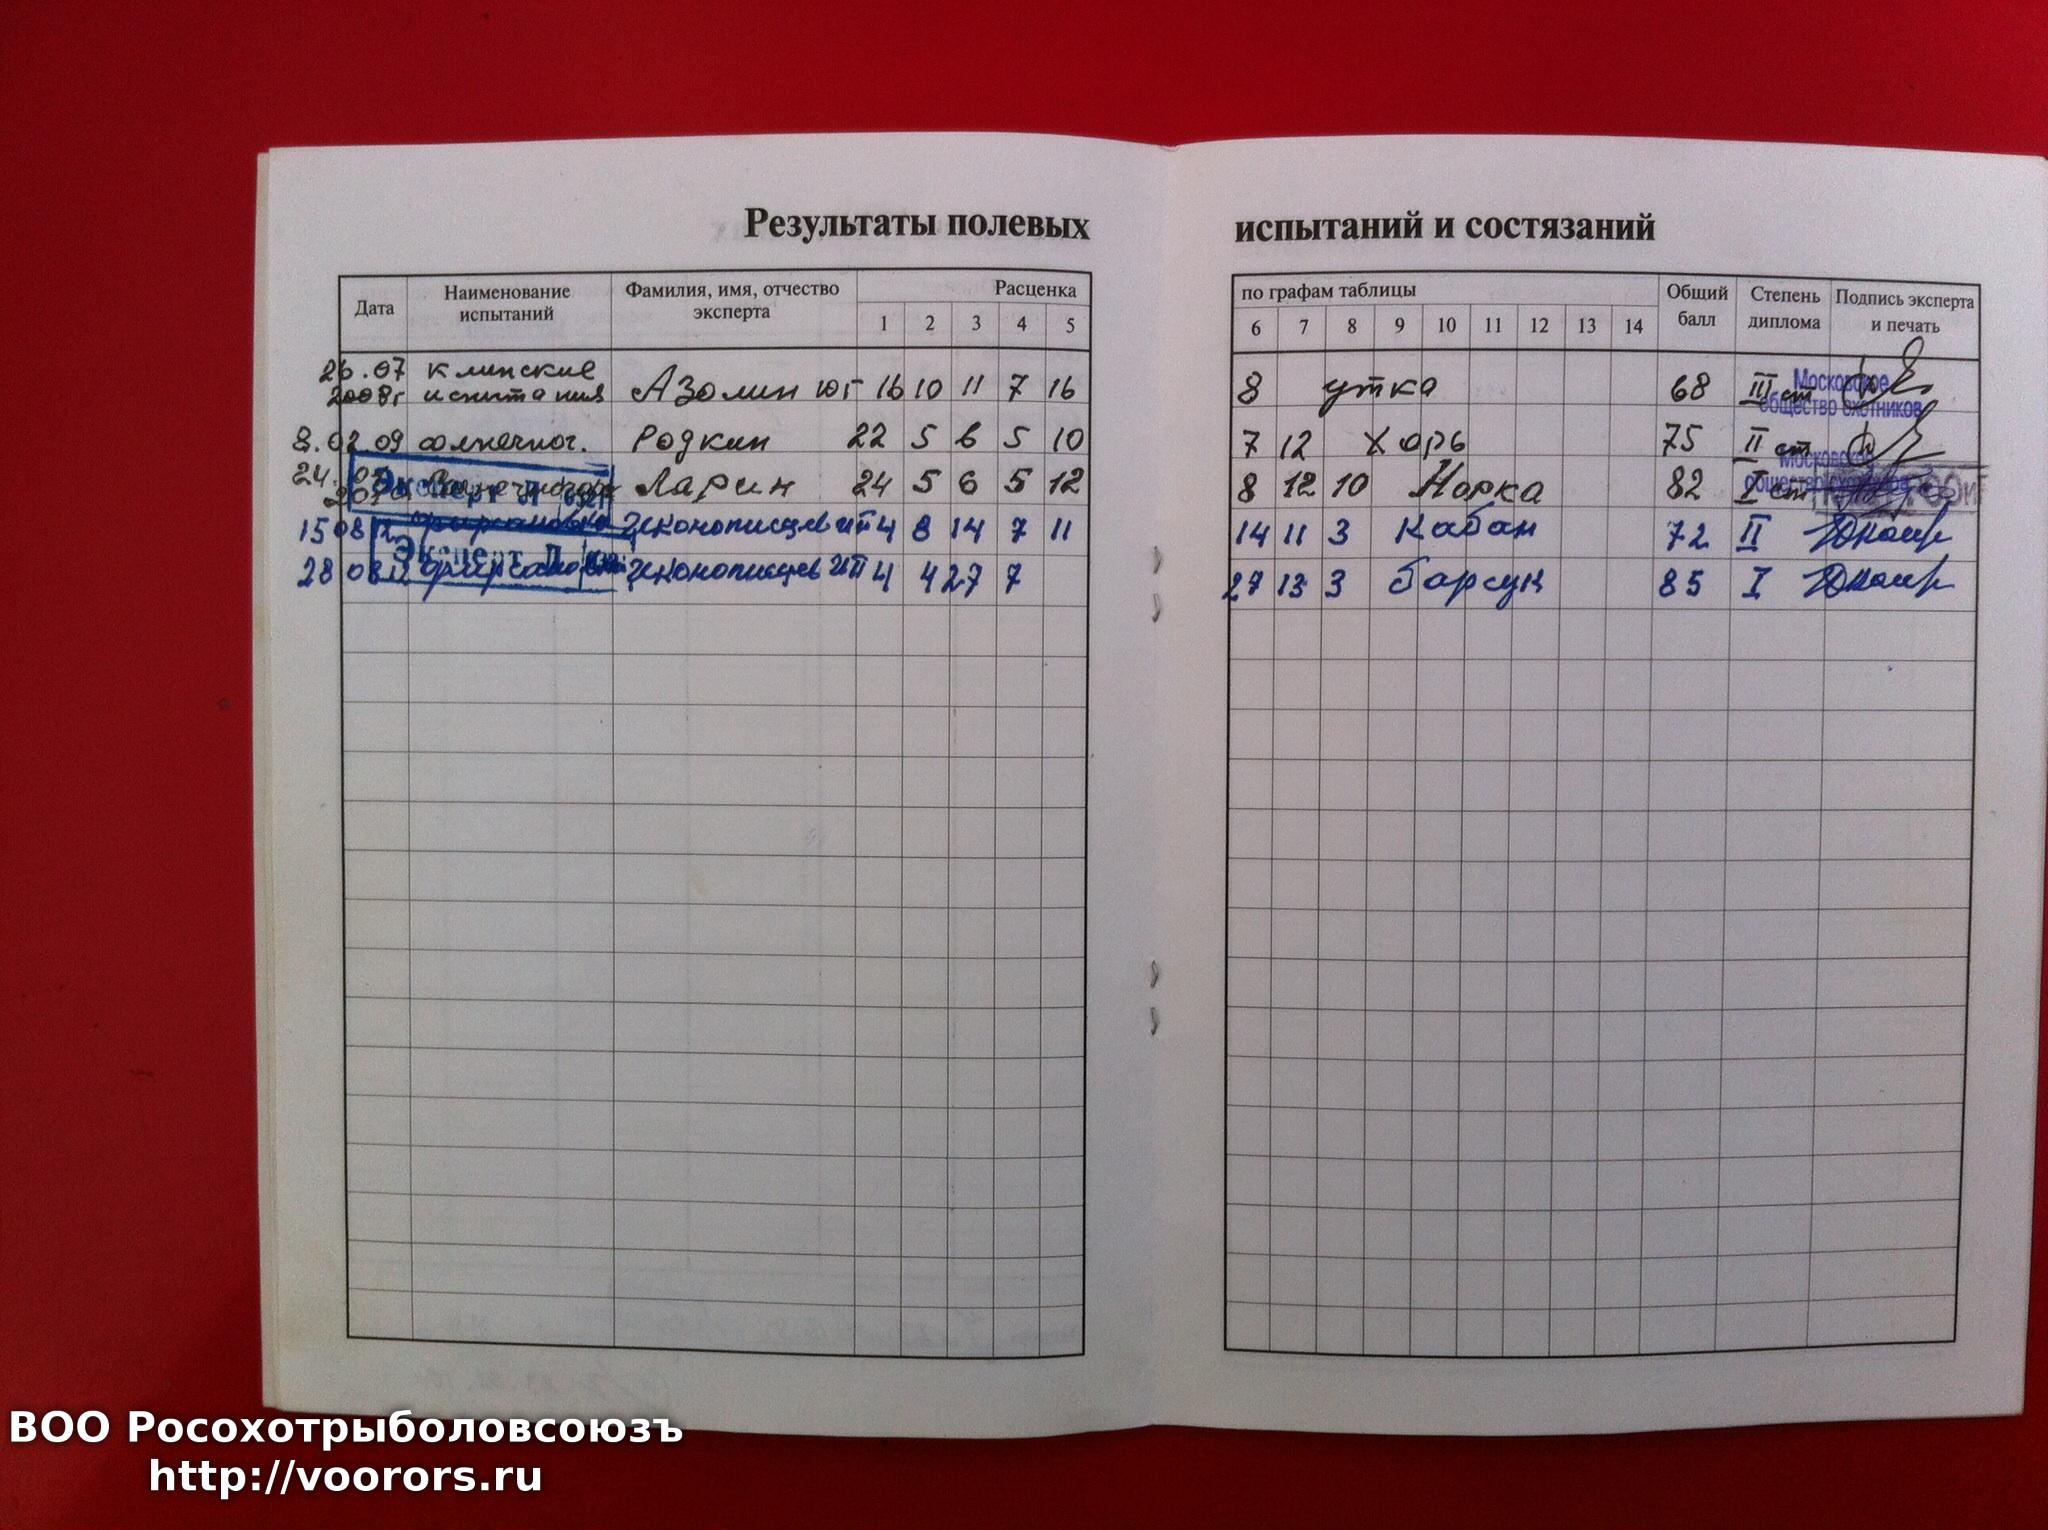 Результаты полевых испытаний и состязаний
Дата Наименование испытаний Фамилия, имя, отчество эксперта Расценка
1 2 3 4 5
по графам таблицы Общий балл Степень диплома Подпись эксперта и печать
6 7 8 9 10 11 12 13 14
26.07 2008г клинские испытания Азолин ЮГ 16 10 11 7 16 8 утка 68 III ст
Московское общество охотников
8.02.09 солнечног. Родкин 22 5 6 5 10 7 12 Хорь 75 II ст
Московское общество охотников
24. Ларин 24 5 6 5 12 8 12 10 Норка 82 I ст
Эксперт
15 08 12 4 8 14 7 11 14 11 3 Кабан 72 II
Эксперт
28 08 12 4 4 27 7 27 13 3 барсук 85 I
ВОО Росохотрыболовсоюзъ
http://voorors.ru